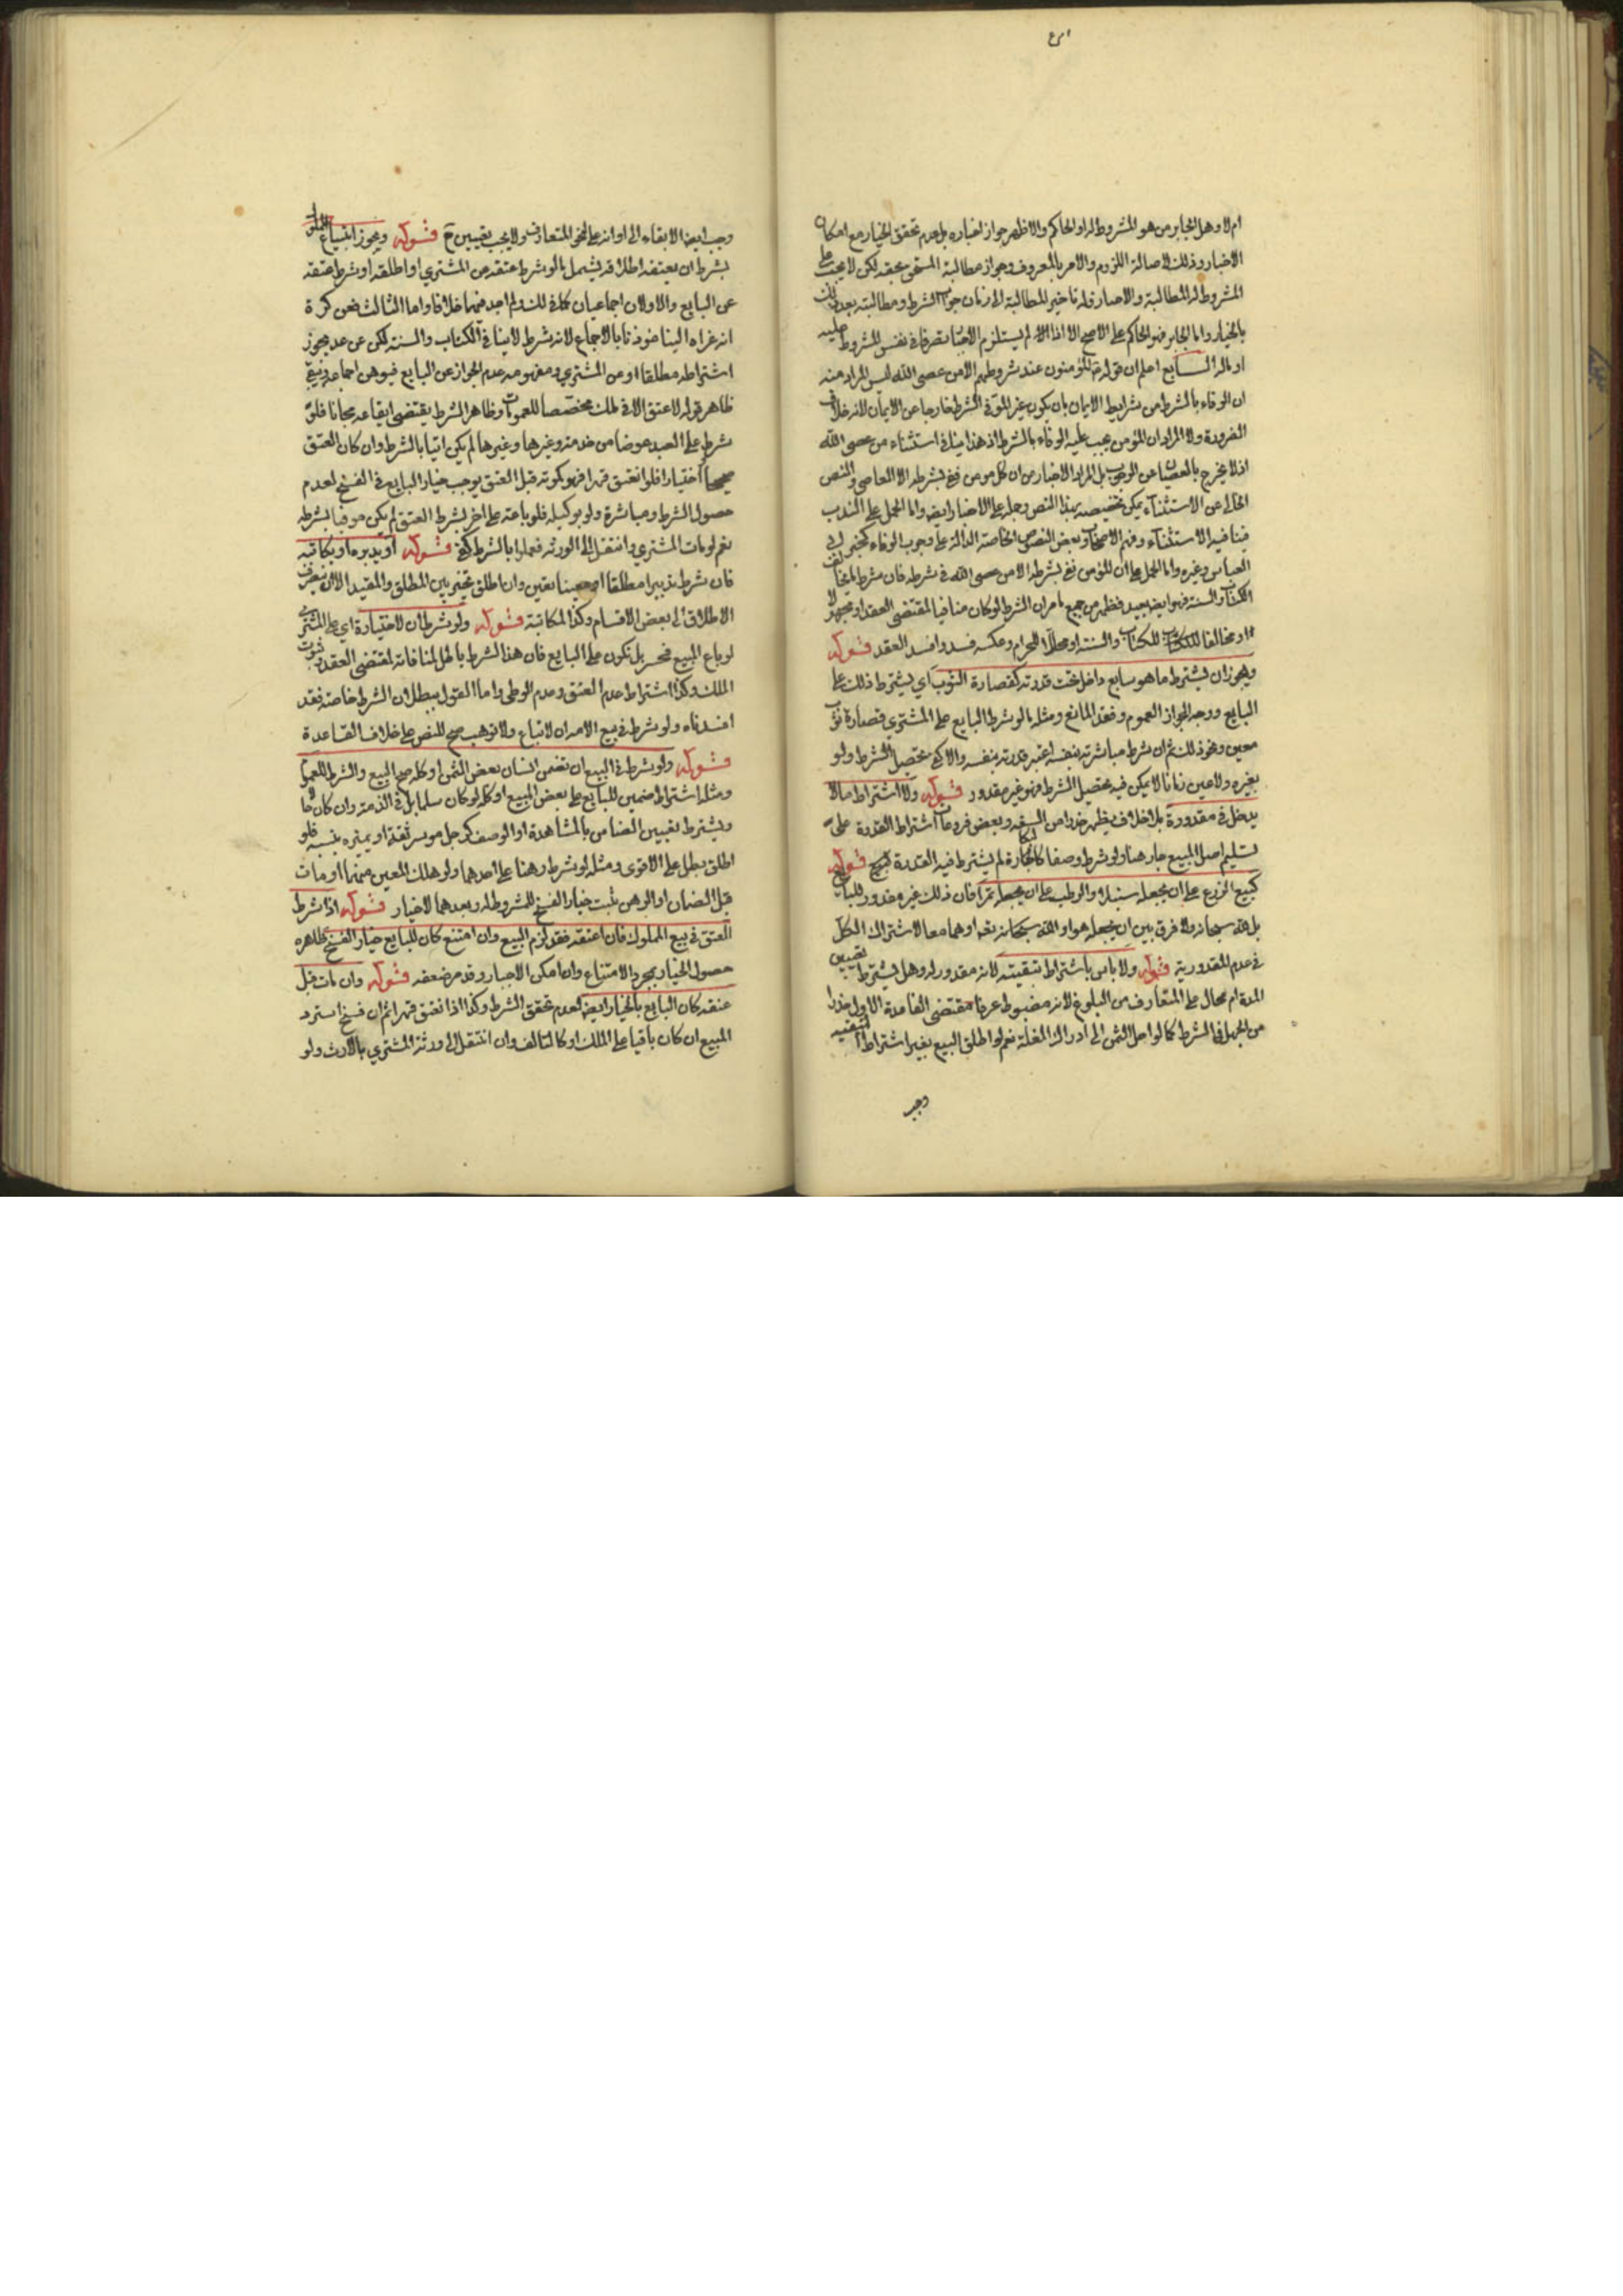 ام لا وهل الجابر من هو المشروط له او الحاكم والاظهر جواز اخباره بل عدم تحقق الخيار مع امكان
الاخبار وذلك لاصالة اللزوم والامر بالمعروف وجواز مطالبة المستحق بحقه لكن لا يجب على
المشروط له المطالبة والاجبار فله تاخير المطالبة الى زمان الشرط ومطالبته بعد ذلك
بالخيار واما الجابر فهو الحاكم على الاصح الا اذا لم يستلزم الاجبار تصرفا في نفس المشروط عليه
او ماله السابع اعلم ان قوله المؤمنون عند شروطهم الا من عصى الله ليس المراد منه
ان الوفاء بالشرط من شرايط الايمان بان يكون غير الموفي الشرط خارجا عن الايمان لانه خلاف
الضرورة ولا المراد ان المؤمن يجب عليه الوفاء بالشرط اذ هذا ينافي استثناء من عصى الله
اذ لا يخرج بالعصيان عن الوجوب بل المراد الاخبار من ان كل مومن ففي بشرطه الا المعاصي والنص
الخالي عن الاستثناء يمكن تخصيصه بهذا النص وحمله على الاخبار ايضا واما الحمل على الندب
فينافيه الاستثناء وفهم الاصحاب وبعض النصوص الخاصة الدالة على وجوب الوفاء كخبر ابي
العباس وغيره واما الحمل على ان المؤمن ففي بشرطه الا من عصى الله في شرطه فان شرط ما يخالف
الكتاب والسنة فهو ايضا بعيد فظهر من جميع ما مر ان الشرط لو كان منافيا لمقتضى العقد او مجهولا
او مخالفا للكتاب والسنة او محللا للحرام وعكسه فسد وافسد العقد قوله
ويجوز ان يشترط ما هو سايغ داخل تحت قدرته كقصارة الثوب اي يشترط ذلك على
البايع ووجه الجواز العموم وفقد المانع ومثله ما لو شرط البايع على المشتري قصارة ثوب
معين ونحو ذلك ثم ان شرط مباشرته بنفسه اعتبر قدرته بنفسه والا كفى تحصيل الشرط ولو
بغيره ولو عين زمانا لا يمكن فيه تحصيل الشرط فهو غير مقدور قوله ولا اشتراط ما لا
يدخل في مقدوره بلا خلاف يظهر حذرا من السفه وبعض فروعات اشتراط القدرة على
تسليم اصل المبيع جار هنا ولو شرط وصفا كالكتابة لم يشترط فيه القدرة قوله
كبيع الزرع على ان يجعله سنبلا والرطب على ان يجعله تمرا فان ذلك غير مقدور للبايع
بل لله سبحانه ولا فرق بين ان يجعله هو او الله سبحانه نفسه او هما معا لاشتراك الكل
في عدم المقدورية قوله ولا باس باشتراط تبقيته لانه مقدور له وهل يشترط تعيين
المدة ام يحال على المتعارف من البلوغ لانه مضبوط عرفا مقتضى القاعدة الاول حذرا
من الجهل في الشرط كما لو اجل الثمن الى ادراك الغلة نعم لو اطلق البيع بغير اشتراط التبقية
وجب
وجب ايضا الابقاء الى اوانه على النحو المتعارف ولا يجب تعيين ح قوله ويجوز ابتياع المملوك
بشرط ان يعتقه اطلاقه يشمل ما لو شرط عتقه عن المشتري او اطلقه او شرط عتقه
عن البايع والاولان اجماعيان كما في لم اجد فيهما خلافا واما الثالث فعن كرة
انه عزاه الينا موذنا بالاجماع لانه شرط لا ينافي الكتاب والسنة لكن عن عد يجوز
اشتراطه مطلقا او عن المشتري ومفهومه عدم الجواز عن البايع فيوهن اجماعه ويبقى
ظاهر قوله لا عتق الا في ملك مخصصا للعمومات وظاهر الشرط يقتضي ايقاعه مجانا فلو
شرط على العبد عوضا من خدمة وغيرها وغيرها لم يكن اتيا بالشرط وان كان العتق
صحيحا اختيارا فلو انعتق قهرا فهو كموته قبل العتق يوجب خيار البايع في الفسخ لعدم
حصول الشرط ومباشرة ولو بوكيله فلو باعه على اخر بشرط العتق لم يكن موفيا بشرطه
نعم لو مات المشتري وانتقل الى الورثة فعملوا بالشرط كفى قوله او يدبره او يكاتبه
فان شرط تدبيرا مطلقا او معينا تعين وان اطلق تخير بين المطلق والمقيد الا ان ينصرف
الاطلاق الى بعض الاقسام وكذا المكاتبة قوله ولو شرط ان لا خسارة اي على المشتري
لو باع المبيع فخسر بل تكون على البايع فان هذا الشرط باطل لمنافاته لمقتضى العقد وثبوت
الملك وكذا اشتراط عدم العتق وعدم الوطي واما القول ببطلان الشرط خاصة فقد
افسدناه ولو شرط في بيع الامة ان لا تباع ولا توهب صح للنص على خلاف القاعدة
قوله ولو شرط في البيع ان تضمن انسان بعض الثمن او كله صح البيع والشرط للعموم
ومثله اشتراط ضمين للبايع على بعض المبيع او كله لو كان سلما بل في الذمة وان كان حالا
ويشترط تعيين الضامن بالمشاهدة او الوصف كرجل موسر ثقة او يميزه بنسبه فلو
اطلق بطل على الاقوى ومثله لو شرط رهنا على احدهما ولو هلك المعين منهما او مات
قبل الضمان او الرهن ثبت خيار الفسخ للمشروط له وبعدهما لا خيار قوله اذا شرط
العتق في بيع المملوك فان اعتقه فقد لزم البيع وان امتنع كان للبايع خيار الفسخ ظاهره
حصول الخيار بمجرد الامتناع وان امكن الاجبار وقد مر ضعفه قوله وان مات قبل
عتقه كان البايع بالخيار ايضا لعدم تحقق الشرط وكذا اذا انعتق قهرا ثم ان فسخ استرد
المبيع ان كان باقيا على الملك او كالتالف وان انتقل الى ورثة المشتري بالارث ولو